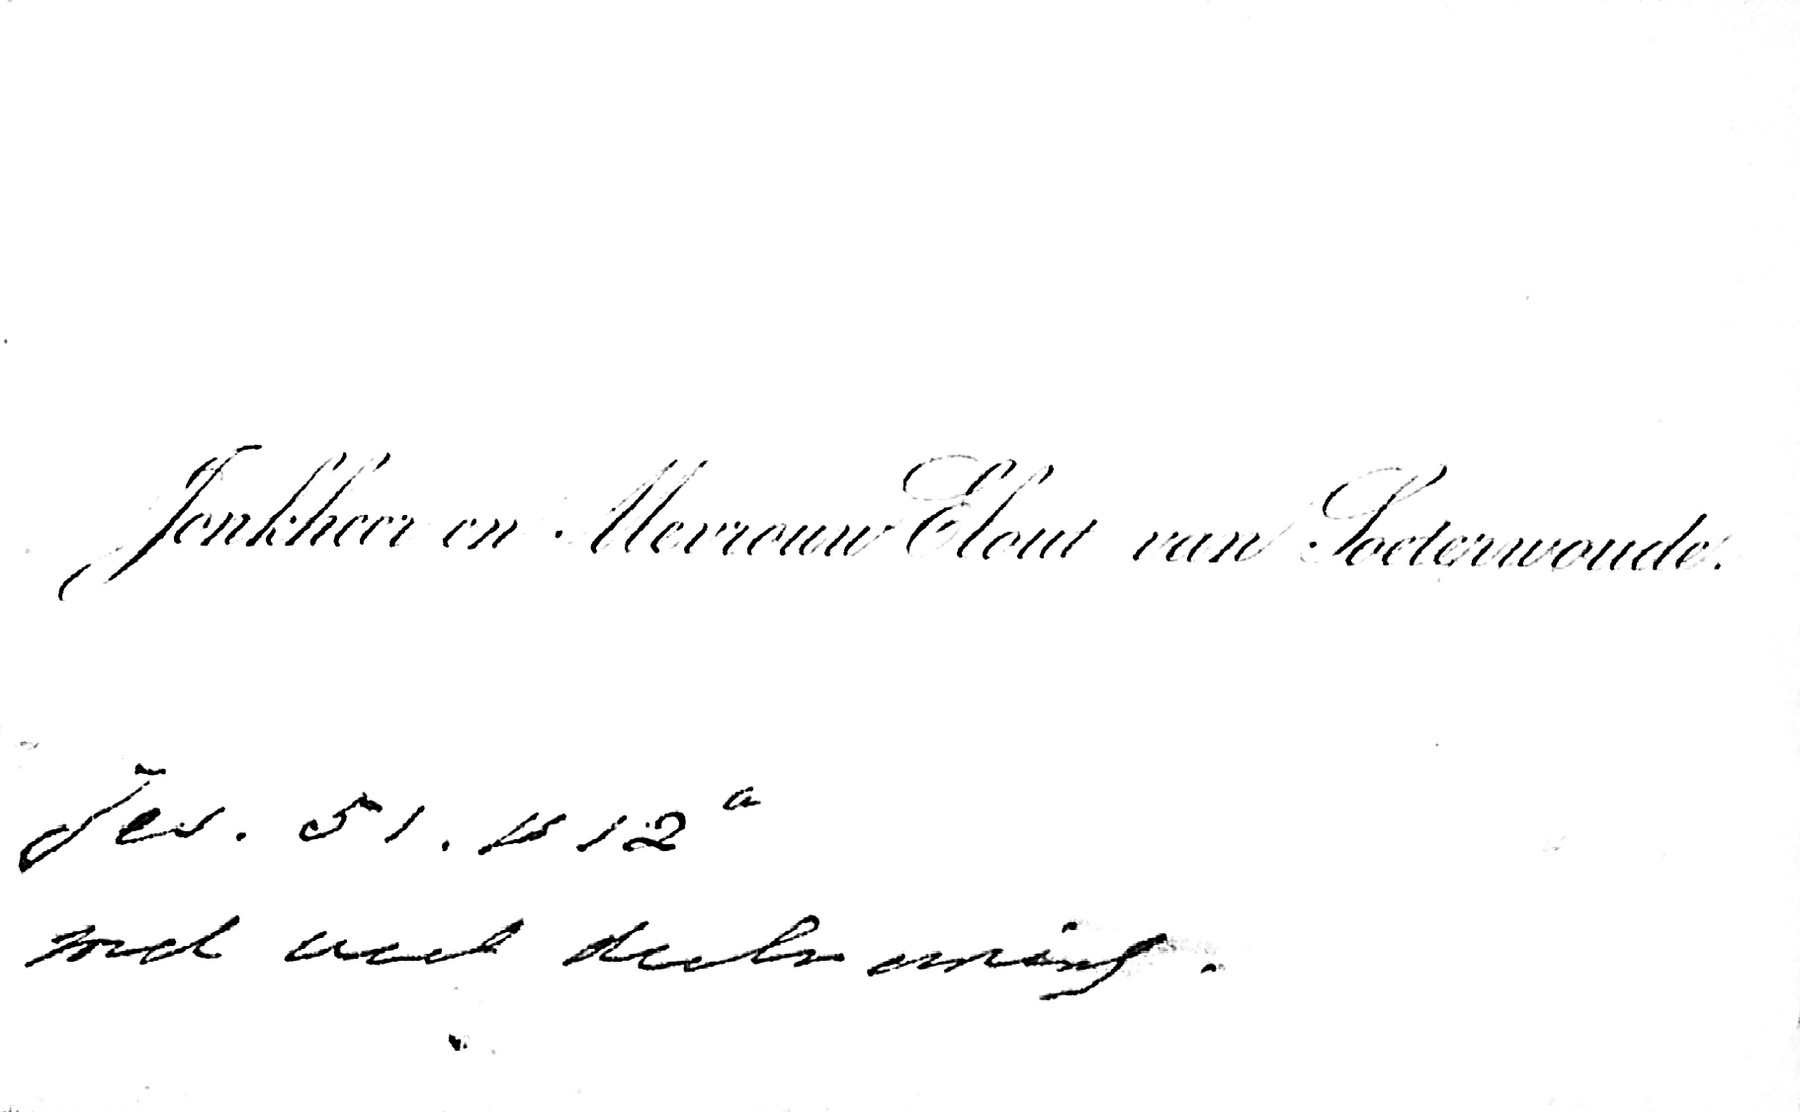 Jonkheer en Mevrouw Elout van Soeterwoude.
Jes. 51. vs 12a
met veel deelneming.